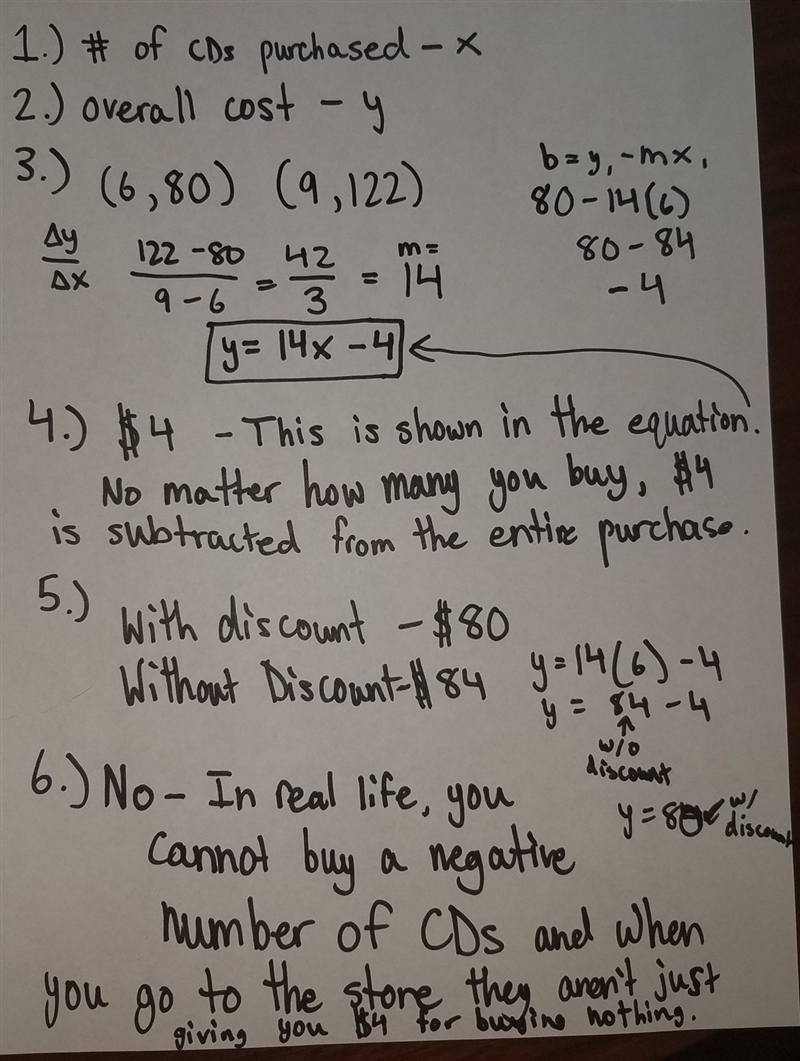 1.) # of CDs purchased - x
2.) overall cost - y
3.) (6,80) (9,122)
Δy/Δx 122-80/9-6 = 42/3 = m= 14
b=y₁-mx₁
80-14(6)
80-84
-4
y= 14x-4
4.) $4 - This is shown in the equation.
No matter how many you buy, $4
is subtracted from the entire purchase.
5.) With discount - $80
Without Discount-$84
y=14(6)-4
y= 84-4
↑
w/o
discount
y=80 w/
discount
6.) No - In real life, you
cannot buy a negative
number of CDs and when
you go to the store they aren't just
giving you $4 for buying nothing.